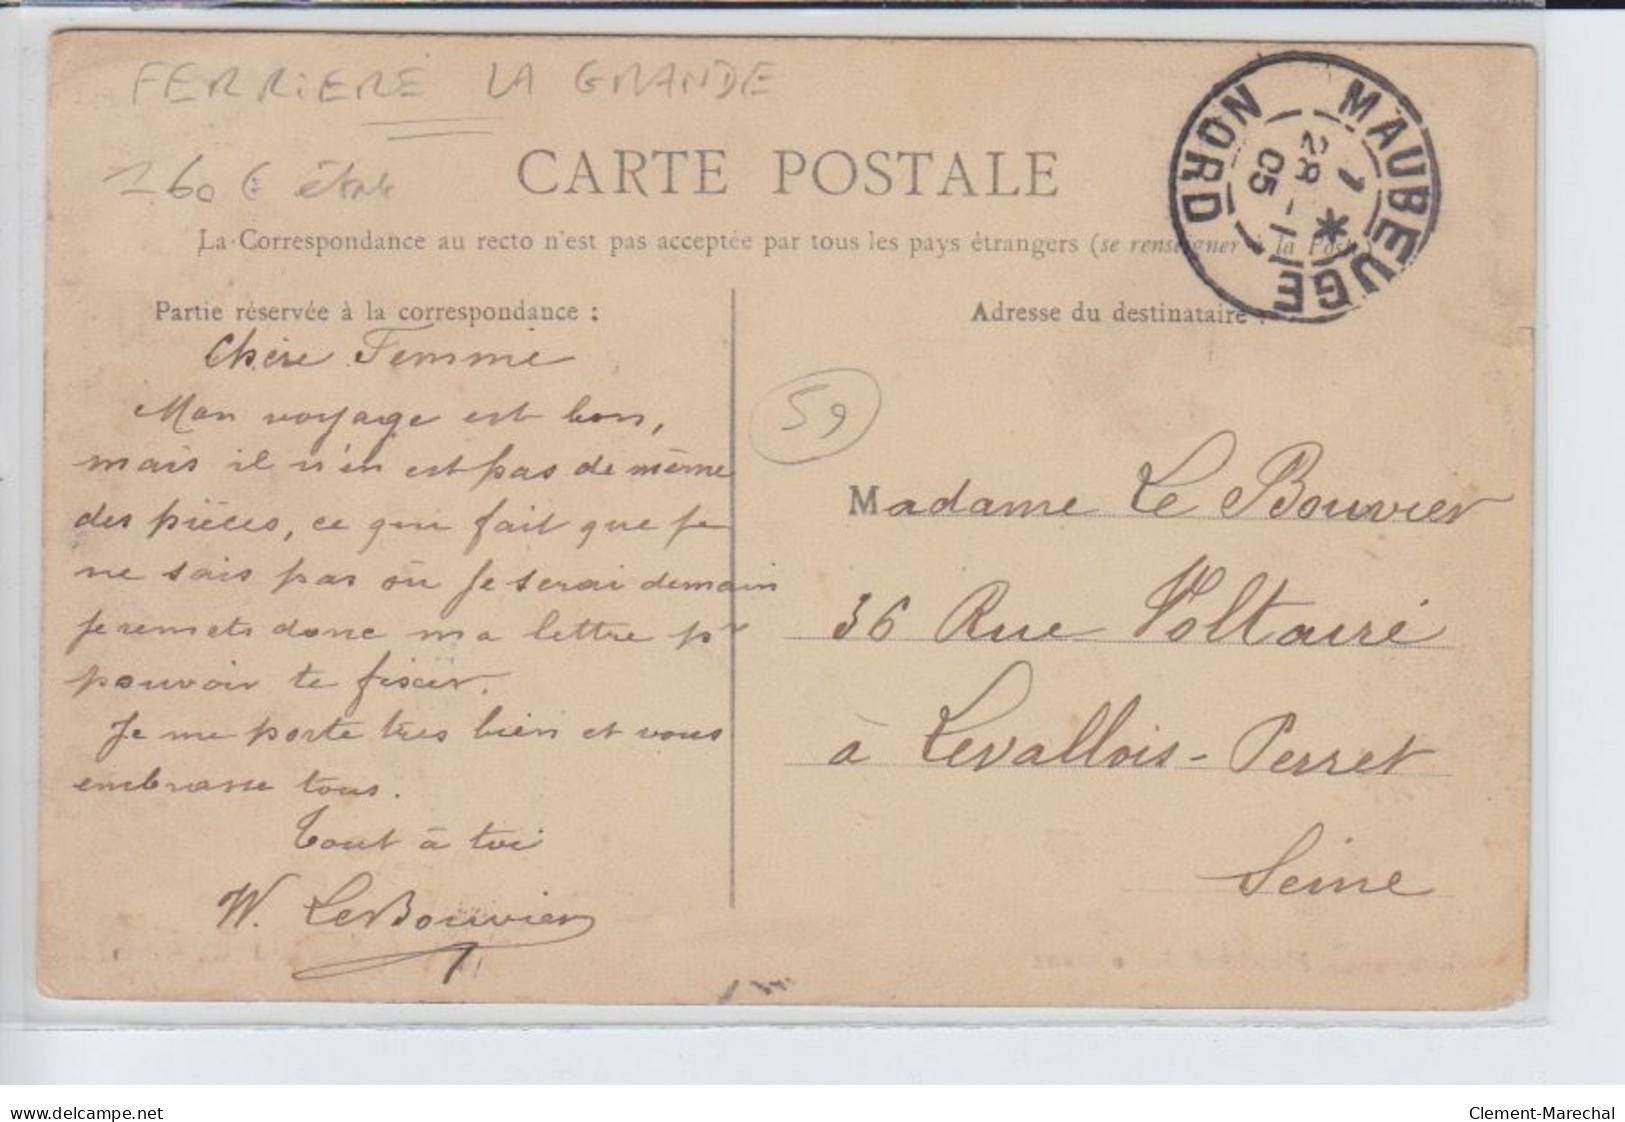 FERRIERE LA GRANDE
CARTE POSTALE
La Correspondance au recto n'est pas acceptée par tous les pays étrangers (se renseigner à la Poste)
MAUBEUGE
NORD
1 *
28 - 1
05
Partie réservée à la correspondance :
Adresse du destinataire :
59
Chère Femme
Mon voyage est bon,
mais il n'en est pas de même
des pièces, ce qui fait que je
ne sais pas où je serai demain
je remets donc ma lettre pr
pouvoir te fixer.
Je me porte très bien et vous
embrasse tous.
Tout à toi
W. LeBouvier
Madame Le Bouvier
36 Rue Voltaire
à Levallois-Perret
Seine
delcampe.net
Clement-Marechal